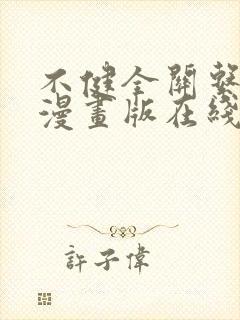 不健全關繫
漫畫版在綫
許子偉